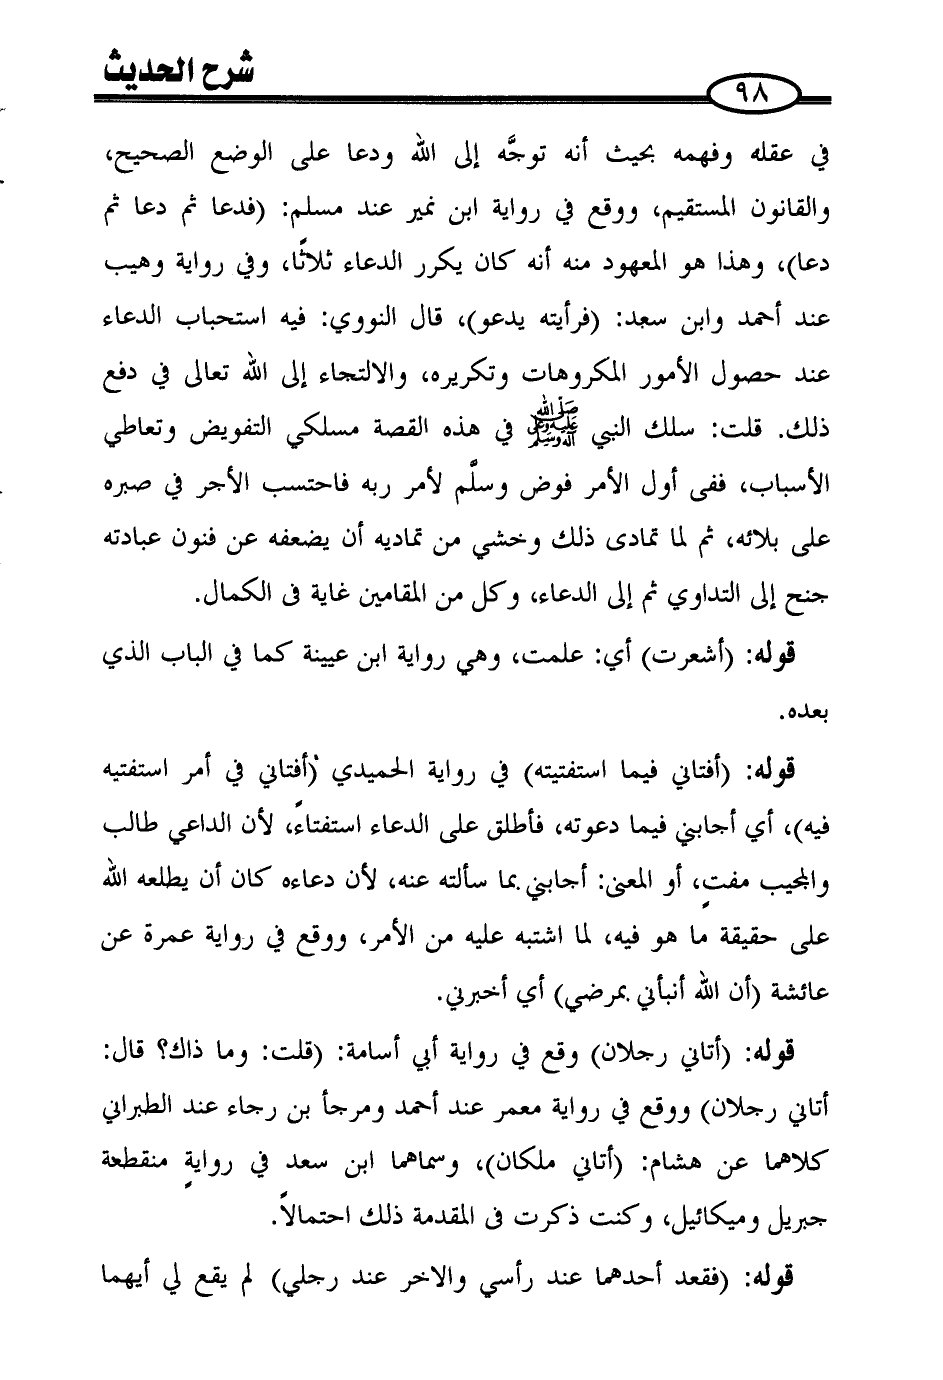 شرح الحديث
٩٨
في عقله وفهمه بحيث أنه توجَّه إلى الله ودعا على الوضع الصحيح،
والقانون المستقيم، ووقع في رواية ابن نمير عند مسلم: (فدعا ثم دعا ثم
دعا)، وهذا هو المعهود منه أنه كان يكرر الدعاء ثلاثًا، وفي رواية وهيب
عند أحمد وابن سعد: (فرأيته يدعو)، قال النووي: فيه استحباب الدعاء
عند حصول الأمور المكروهات وتكريره، والالتجاء إلى الله تعالى في دفع
ذلك. قلت: سلك النبي ﷺ في هذه القصة مسلكي التفويض وتعاطي
الأسباب، ففى أول الأمر فوض وسلَّم لأمر ربه فاحتسب الأجر في صبره
على بلائه، ثم لما تمادى ذلك وخشي من تماديه أن يضعفه عن فنون عبادته
جنح إلى التداوي ثم إلى الدعاء، وكل من المقامين غاية فى الكمال.
قوله: (أشعرت) أي: علمت، وهي رواية ابن عيينة كما في الباب الذي
بعده.
قوله: (أفتاني فيما استفتيته) في رواية الحميدي (أفتاني في أمر استفتيه
فيه)، أي أجابني فيما دعوته، فأطلق على الدعاء استفتاءً، لأن الداعي طالب
والمجيب مفتٍ، أو المعنى: أجابني بما سألته عنه، لأن دعاءه كان أن يطلعه الله
على حقيقة ما هو فيه، لما اشتبه عليه من الأمر، ووقع في رواية عمرة عن
عائشة (أن الله أنبأني بمرضي) أي أخبرني.
قوله: (أتاني رجلان) وقع في رواية أبي أسامة: (قلت: وما ذاك؟ قال:
أتاني رجلان) ووقع في رواية معمر عند أحمد ومرجأ بن رجاء عند الطبراني
كلاهما عن هشام: (أتاني ملكان)، وسماهما ابن سعد في روايةٍ منقطعة
جبريل وميكائيل، وكنت ذكرت فى المقدمة ذلك احتمالاً.
قوله: (فقعد أحدهما عند رأسي والاخر عند رجلي) لم يقع لي أيهما